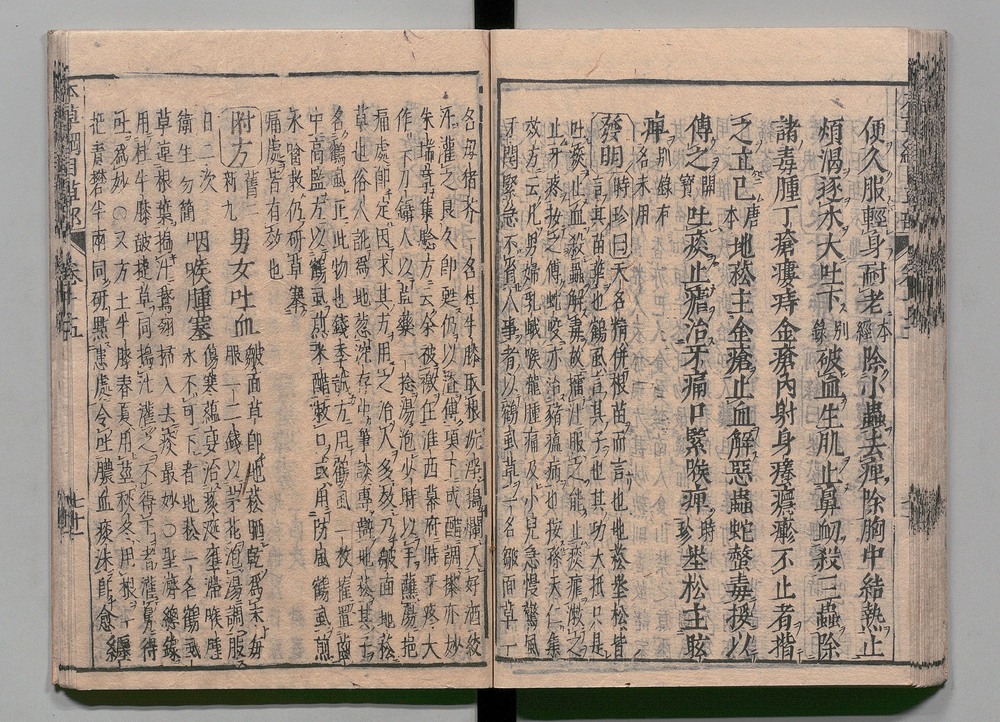 便久服輕身耐老本經除小蟲去痺除胸中結熱止
煩渴逐水大吐下別錄破血生肌止鼻衄殺三蟲除
諸毒腫丁瘡瘻痔金瘡內射身癢癮疹不止者揩
之立已唐本地菘主金瘡止血解惡蟲蛇螫毒挼以
傅之開寶吐痰止瘧治牙痛口緊喉痺時珍埊松主眩
痺別錄有名未用
發明時珍曰天名精併根苗而言也地菘埊松皆
言其苗葉也鶴虱言其子也其功大抵只是
吐痰止血殺蟲解毒故擂汁服之能止痰瘧漱之
止牙疼挼之傅蛇咬亦治豬瘟病也按孫天仁集
效方云凡男婦乳蛾喉嚨腫痛及小兒急慢驚風
牙關緊急不省人事者以鶴虱草一名皺面草一
名母猪芥一名杜牛膝取根洗淨搗爛入好酒絞
汁灌之良久即甦仍以渣傅項下或醋調搽亦妙
朱端章集驗方云余被檄任淮西幕府時牙疼大
作一下刀鑷人以草藥一捻湯泡少時以手蘸湯挹
痛處即定因求其方用之治人多效乃皺面地菘
草也俗人訛爲地葱沈存中筆談專辨地菘其子
名鶴虱正此物也錢季誠方用鶴虱一枚擢置齒
中高監方以鶴虱煎米醋漱口或用防風鶴虱煎
水噙漱仍研草塞
痛處皆有效也
附方舊二新九男女吐血皺面草即地菘晒乾爲末每
服一二錢以茅花泡湯調服
日二次
衛生易簡咽喉腫塞傷寒蘊要治痰涎壅滯喉腫
水不可下者地菘一名鶴虱
草連根葉搗汁鵝翎掃入去痰最妙○聖濟總錄
用杜牛膝鼓搥草同搗汁灌之不得下者灌鼻得
吐爲妙○又方土牛膝春夏用莖秋冬用根一
把青礬半兩同研點患處令吐膿血痰沫即愈纏
本草綱目草部 卷十五